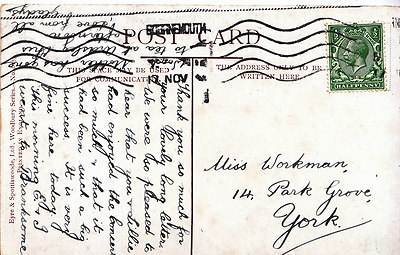 POST CARD
THIS SPACE MAY BE USED
FOR COMMUNICATION
THE ADDRESS ONLY TO BE
WRITTEN HERE.
BOURNEMOUTH
NOV
HALFPENNY
Thank you so much for
your lovely long letter.
We were so pleased to
hear that you & Lillie
had enjoyed the concert
so much & that it
had been such a big
success. It is very
fine here today.
This morning E & I
went to Branksome
to tea at
this
afternoon
has gone
Love from all
Gladys
Miss Workman,
14, Park Grove,
York.
Eyre & Spottiswoode, Ltd., Woodbury Series, No.